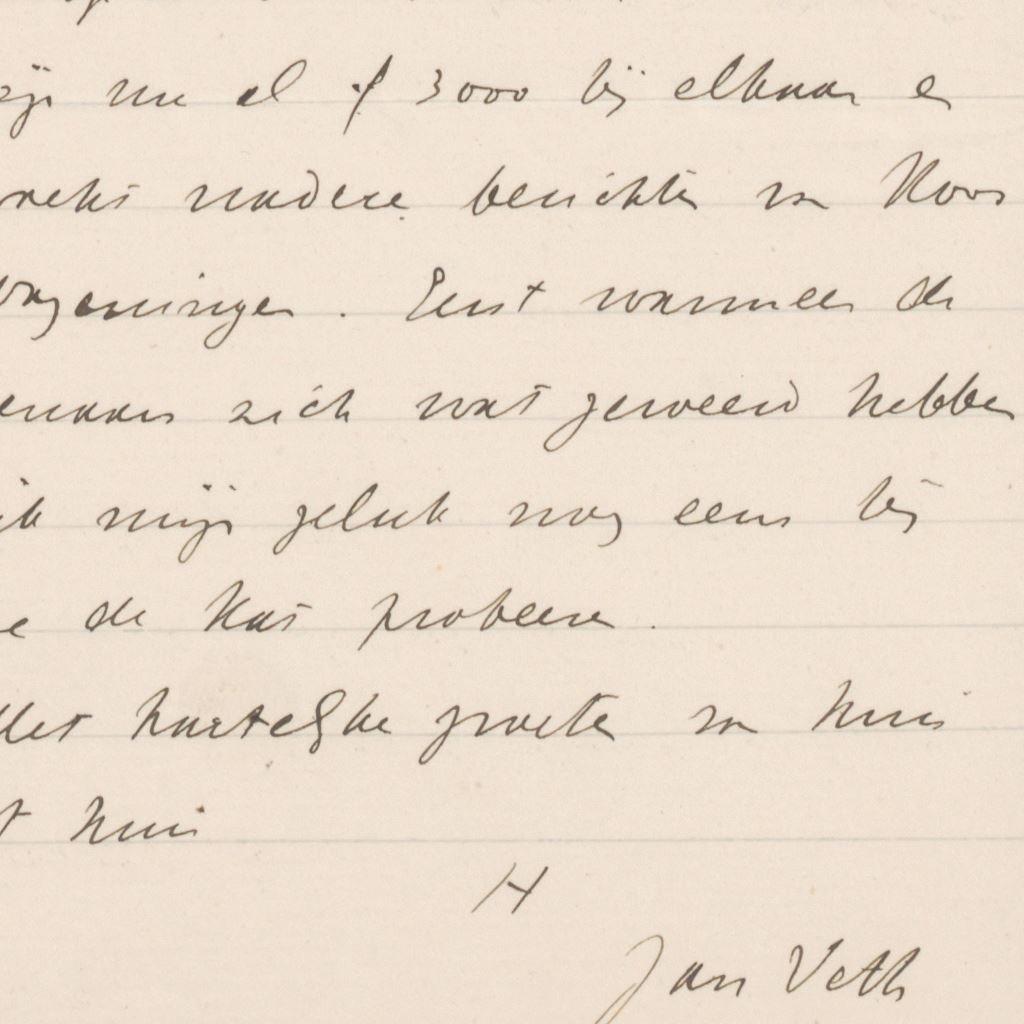 zijn nu al f 3000 bij elkaar en
nadere berichten van Koos
Wageningen. Eerst wanneer de
zich wat geweerd hebben
ik mijn geluk nog eens bij
de Kas probeeren.
Met hartelijke groeten van huis
t huis
H
Jan Veth